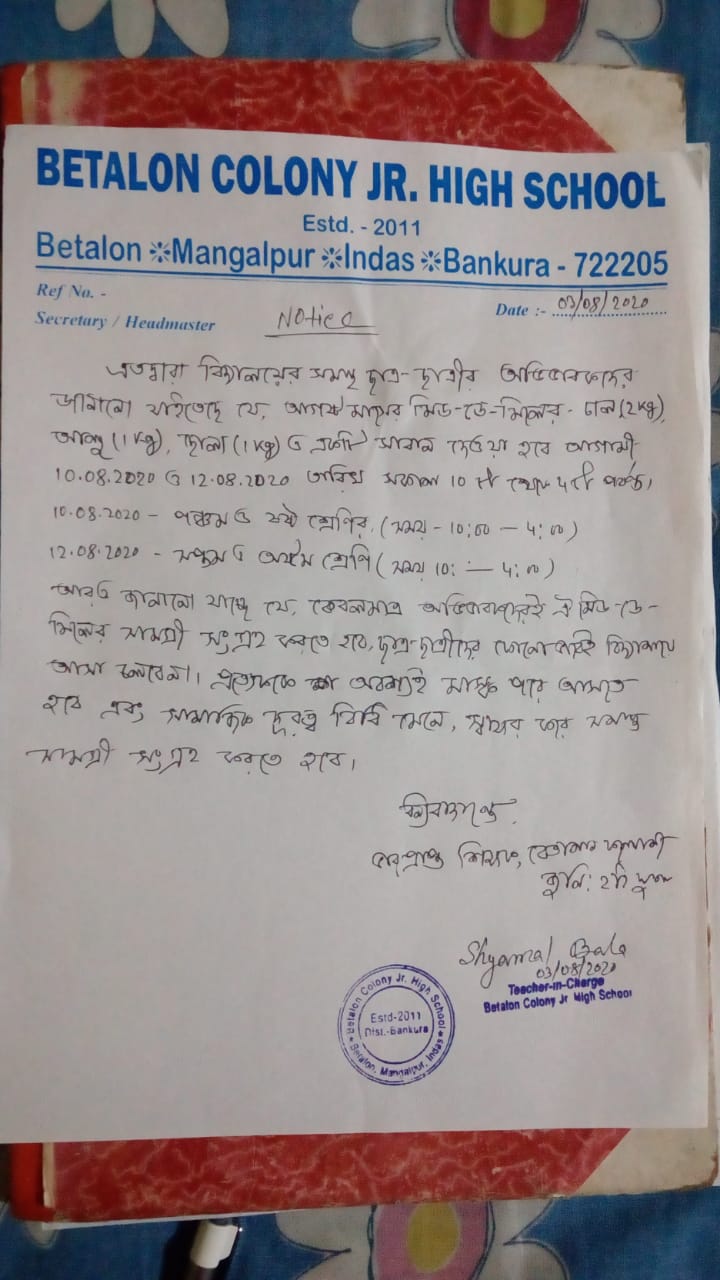 BETALON COLONY JR. HIGH SCHOOL
Estd. - 2011
Betalon ❊Mangalpur ❊Indas ❊Bankura - 722205
Ref No. -
Date :- 03/08/2020
Secretary / Headmaster
Notice
এতদ্বারা বিদ্যালয়ের সমস্ত ছাত্র-ছাত্রীর অভিভাবকদের
জানানো যাইতেছে যে, আগষ্ট মাসের মিড-ডে-মিলের- চাল (2kg),
আলু (1 kg), ছোলা (1 kg) ও একটি সাবান দেওয়া হবে আগামী
10.08.2020 ও 12.08.2020 তারিখ সকাল 10 টা থেকে 4টা পর্যন্ত।
10.08.2020 - পঞ্চম ও ষষ্ঠ শ্রেণির, (সময় - 10:00 — 4:00)
12.08.2020 - সপ্তম ও অষ্টম শ্রেণি (সময় 10: — 4:00)
আরও জানানো যাচ্ছে যে, কেবলমাত্র অভিভাবকদেরই ঐ মিড-ডে-
মিলের সামগ্রী সংগ্রহ করতে হবে, ছাত্র-ছাত্রীদের কোনো ভাবেই বিদ্যালয়ে
আসা চলবেনা। প্রত্যেককে অবশ্যই মাস্ক পরে আসতে
হবে এবং সামাজিক দূরত্ব বিধি মেনে, স্বাক্ষর করে সমস্ত
সামগ্রী সংগ্রহ করতে হবে।
ভারপ্রাপ্ত শিক্ষক, বেতালন কলোনী
জুনি: হাই স্কুল
Shyamal Bala
03/08/2020
Teacher-in-Charge
Betalon Colony Jr High School
Betalon Colony Jr. High School
Estd-2011
Dist.-Bankura
Betalon, Mangalpur, Indas